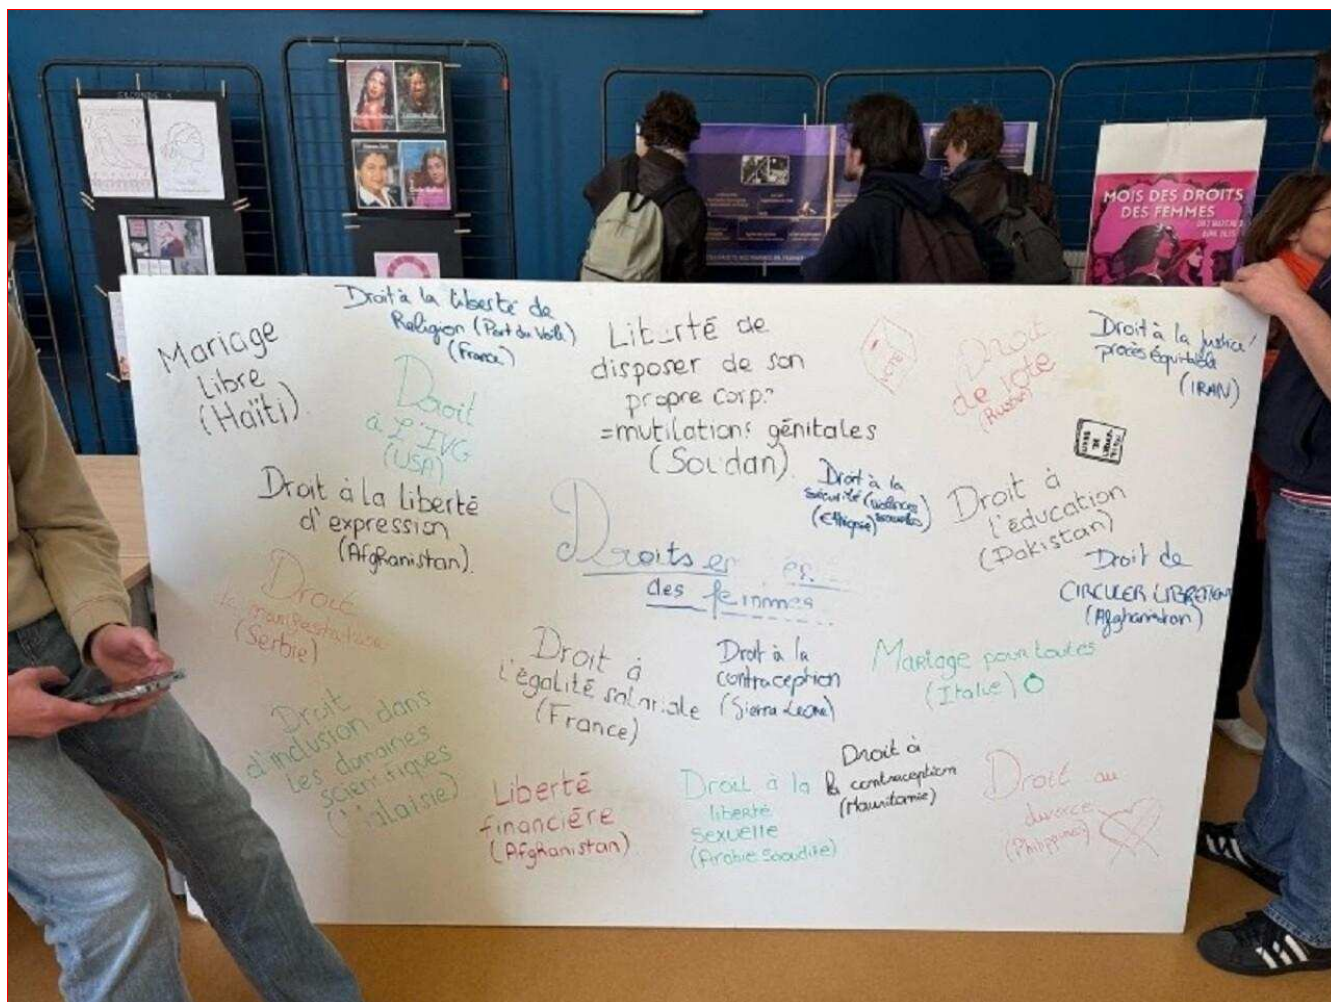 MOIS DES DROITS
DES FEMMES
Mariage
Libre
(Haïti)
Droit à la liberté de
Religion (Port du Voile)
(France)
Droit
à L'IVG
(USA)
Liberté de
disposer de son
propre corp
=mutilations génitales
(Soudan)
VOTE
Droit
de vote
(Russie)
Droit à la Justice/
procès équitable
(IRAN)
Droit à la liberté
d'expression
(Afghanistan)
Droits
des femmes
Droit à la
sécurité (violences
(Ethiopie) sexuelles)
Droit à
l'éducation
(Pakistan)
Droit de
CIRCULER LIBREMENT
(Afghanistan)
Droit
la manifestation
(Serbie)
Droit à
l'égalité salariale
(France)
Droit à la
contraception
(Sierra Leone)
Mariage pour toutes
(Italie)
Droit
d'inclusion dans
les domaines
scientifiques
Liberté
financière
(Afghanistan)
Droit à la
liberté
sexuelle
(Arabie Saoudite)
Droit à
la contraception
(Mauritanie)
Droit au
divorce
(Philippines)